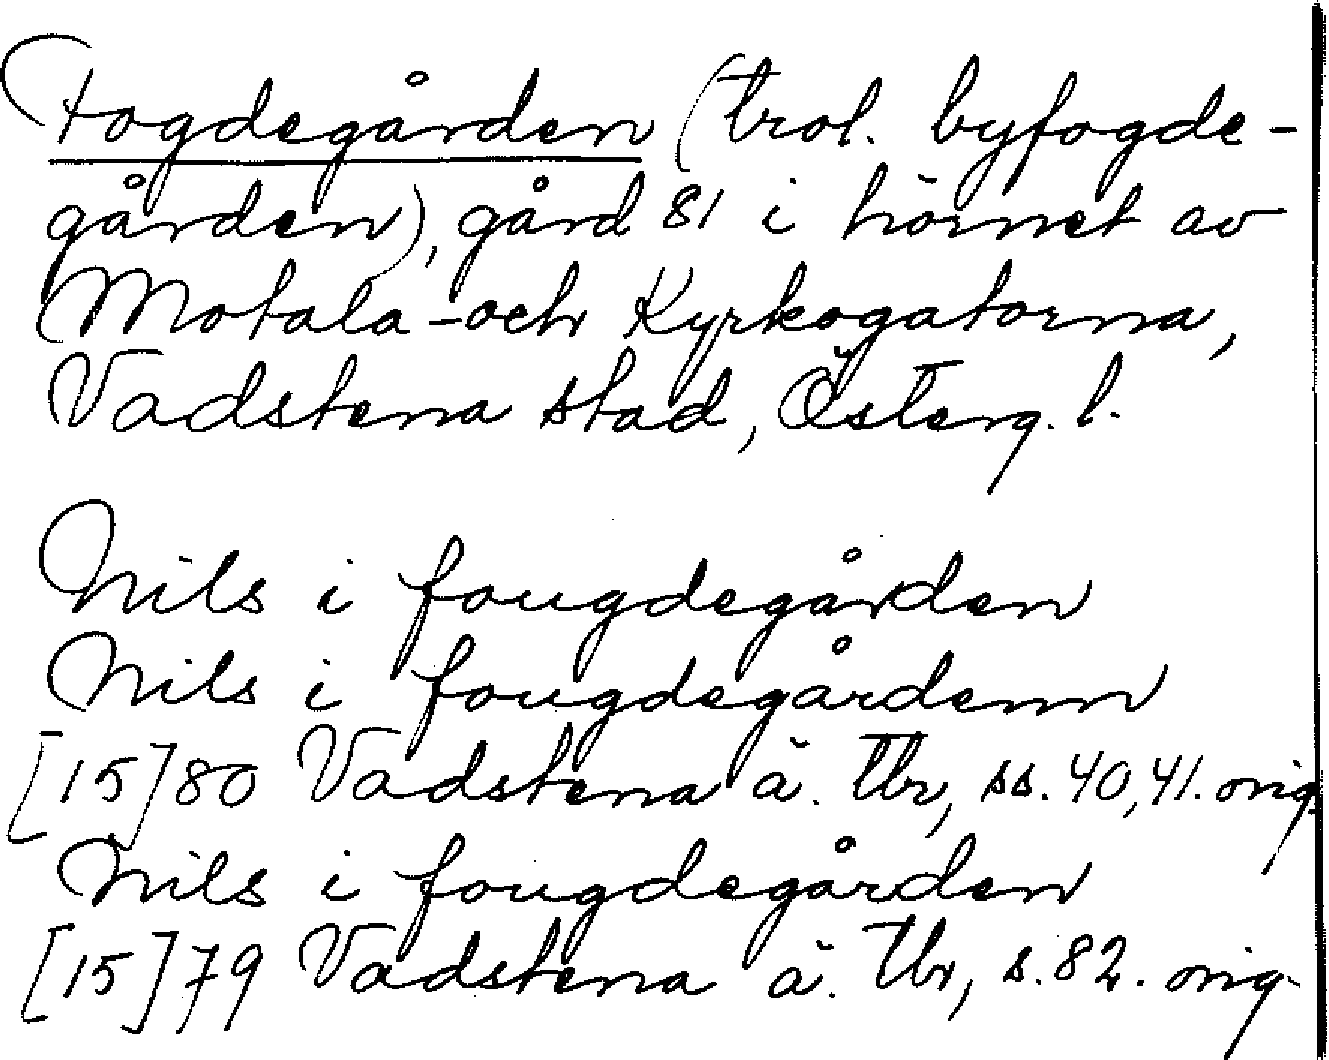 Fogdegården (trol. byfogde-
gården), gård 81 i hörnet av
Motala- och Kyrkogatorna,
Vadstena stad, Österg. l.
Nils i fougdegården
Nils i fougdegårdenn
[15]80 Vadstena ä. Tbr, ss. 40, 41. orig.
Nils i fougdegården
[15]79 Vadstena ä. Tbr, s. 82. orig.